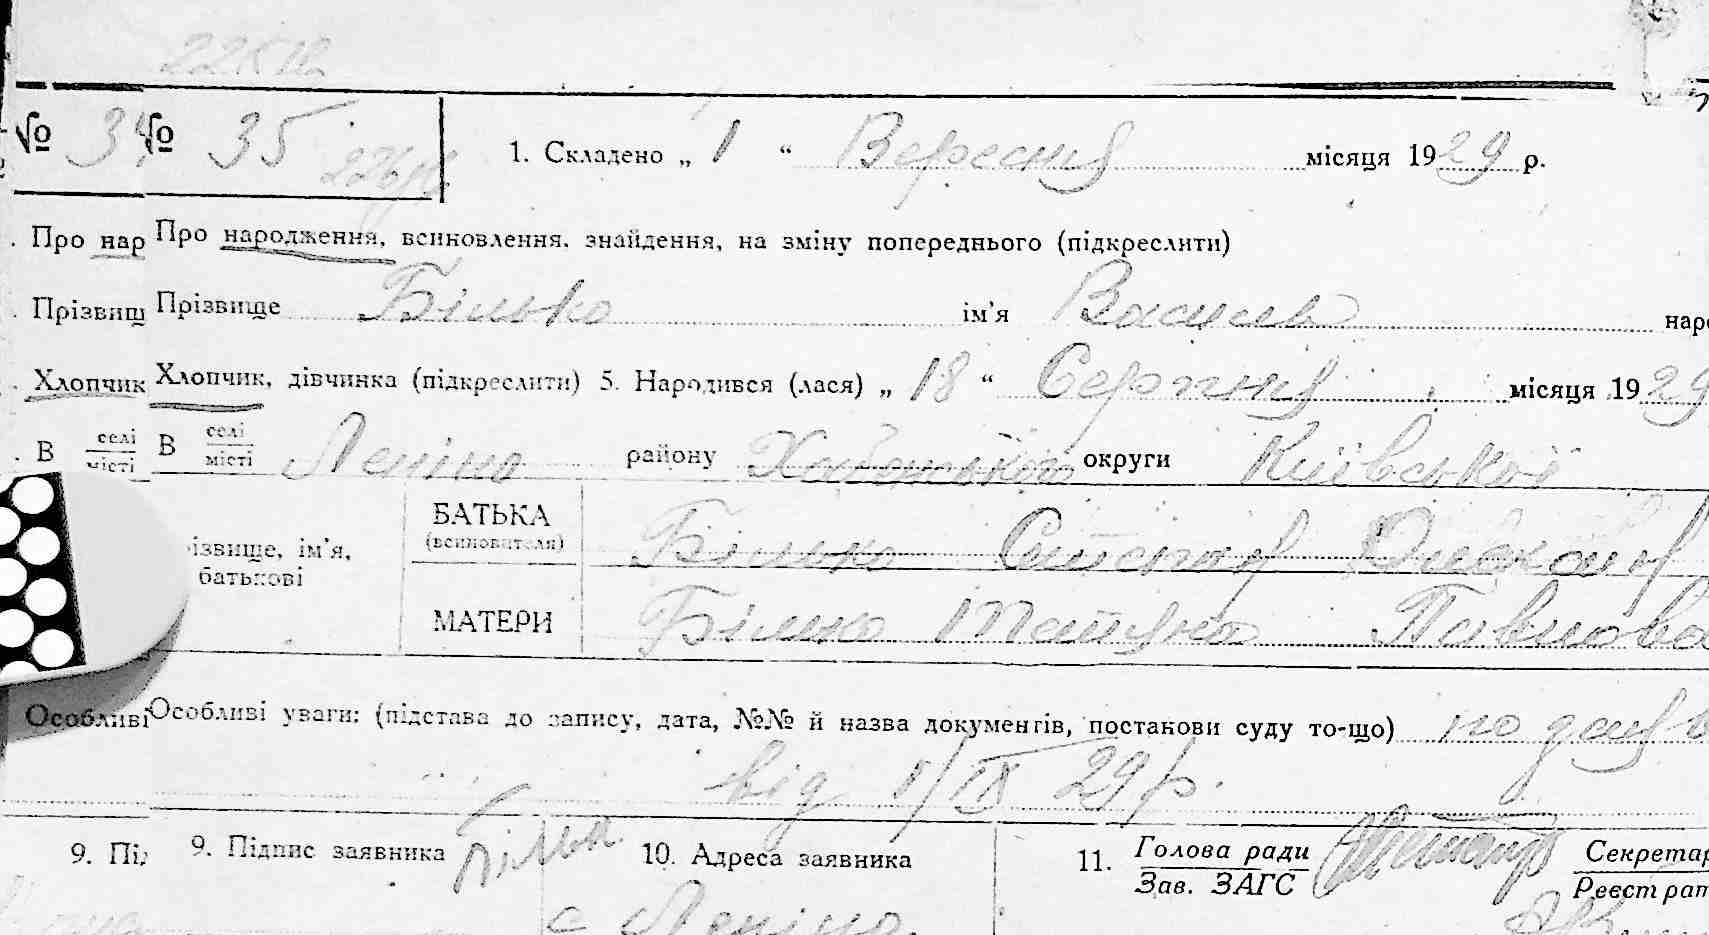 № 34 № 35
1. Складено „ 1 “ Вересня місяця 1929 р.
Про нар Про народження, всиновлення, знайдення, на зміну попереднього (підкреслити)
Прізвищ Прізвище Білько ім'я Василь нар
Хлопчик Хлопчик, дівчинка (підкреслити) 5. Народився (лася) „ 18 “ Серпня місяця 1929
В селі місті В селі місті Леніно району Хабенського округи Київської
різвище, ім'я, батькові
БАТЬКА (всиновителя) Білько
МАТЕРИ Білько Тетяна Павлова
Особливі Особливі уваги: (підстава до запису, дата, №№ й назва документів, постанови суду то-що) по заяв
від 1/IX 29 р.
9. Під 9. Підпис заявника Білько 10. Адреса заявника 11. Голова ради Зав. ЗАГС Секретар Реєстрат
с Леніно